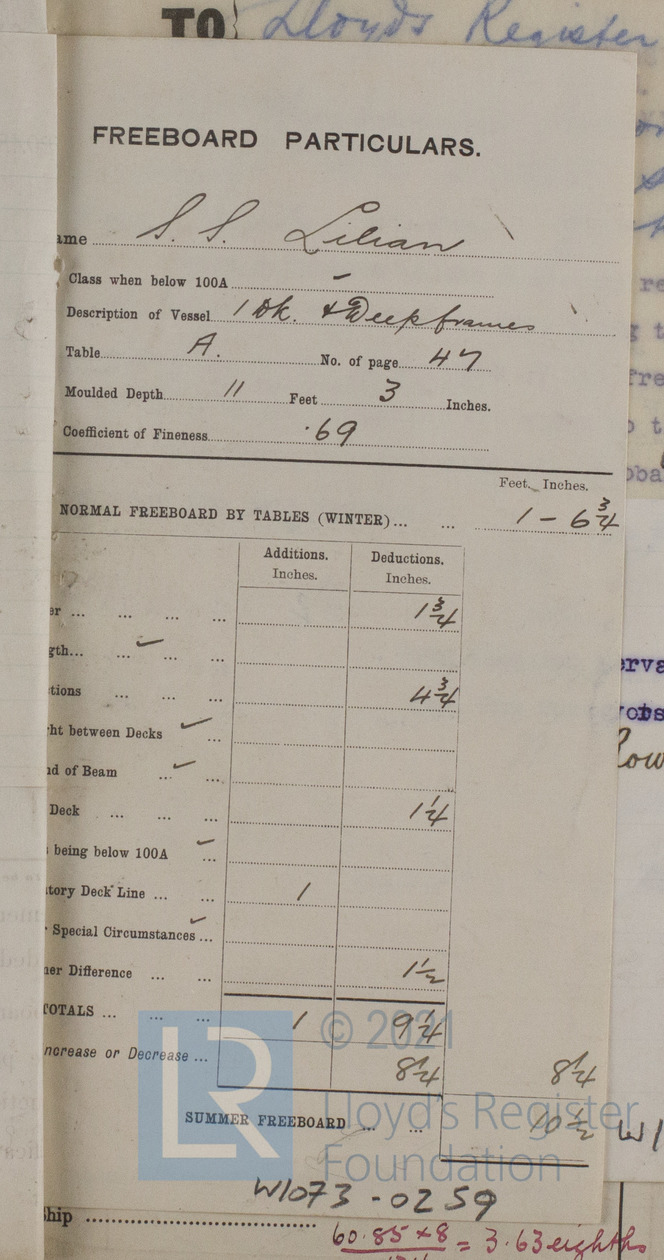 TO Lloyds Register
FREEBOARD PARTICULARS.
ame S. S. Lilian
Class when below 100A –
Description of Vessel 1 Dk. & Deep frames
Table A. No. of page 47
Moulded Depth 11 Feet 3 Inches.
Coefficient of Fineness ·69
Feet. Inches.
NORMAL FREEBOARD BY TABLES (WINTER)... ... 1 - 6 3/4
Additions. Deductions.
Inches. Inches.
er ... ... ... ... 1 3/4
gth... ... ... ...
tions ... ... ... 4 3/4
ht between Decks ...
nd of Beam ... ...
Deck ... ... ... 1 1/4
being below 100A ...
tory Deck Line ... ... 1
Special Circumstances ...
er Difference ... ... 1 1/2
TOTALS ... ... ... 1 9 1/4
ncrease or Decrease ... 8 1/4 8 1/4
SUMMER FREEBOARD ... ... 10 1/2
© 2021
LR Lloyd's Register
Foundation
W1073-0259
ship
60.85 x 8 = 3.63 eighths